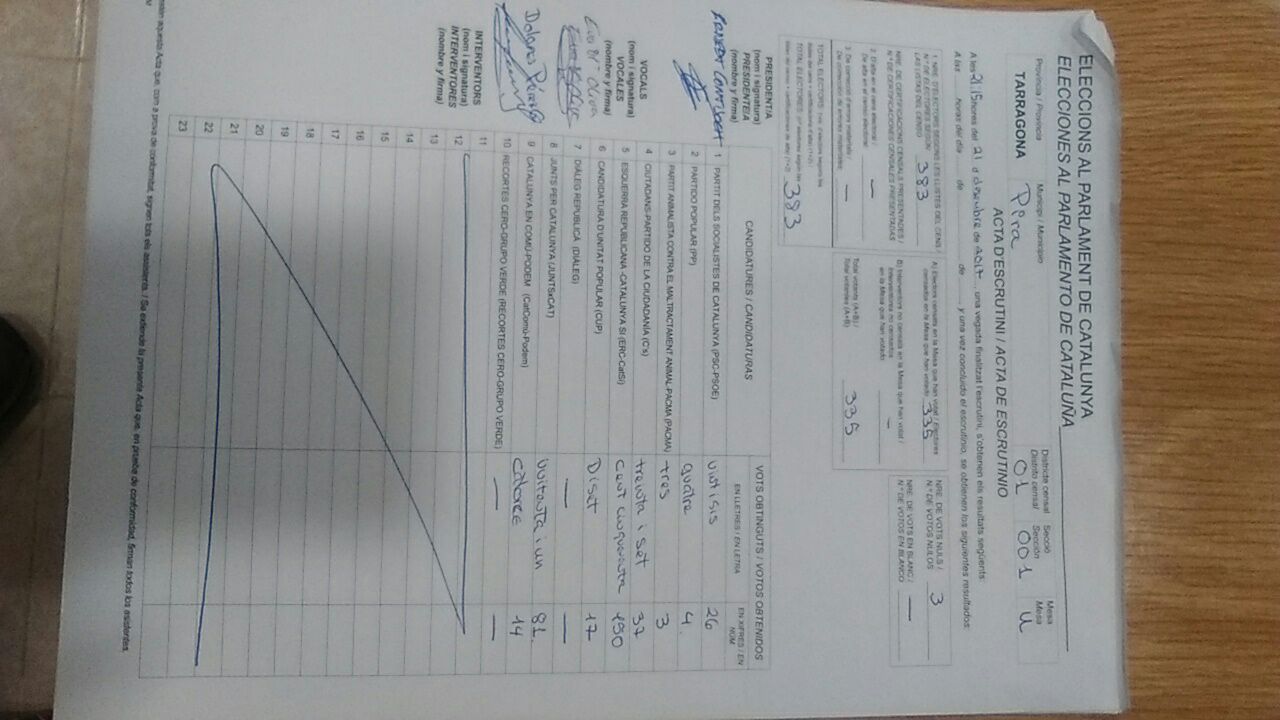 ELECCIONS AL PARLAMENT DE CATALUNYA
ELECCIONES AL PARLAMENTO DE CATALUÑA
Província / Provincia Municipi / Municipio Districte censal Secció Mesa
Distrito censal Sección Mesa
TARRAGONA Pira 01 001 U
ACTA D'ESCRUTINI / ACTA DE ESCRUTINIO
A les 21:15 hores del 21 d desembre de 2017 una vegada finalitzat l'escrutini, s'obtenen els resultats següents:
A las horas del día de de y una vez concluido el escrutinio, se obtienen los siguientes resultados:
1. NRE. D'ELECTORS SEGONS LES LLISTES DEL CENS /
N.º DE ELECTORES SEGÚN
LAS LISTAS DEL CENSO 383
NRE. DE CERTIFICACIONS CENSALS PRESENTADES /
N.º DE CERTIFICACIONES CENSALES PRESENTADAS
2. D'alta en el cens electoral /
De alta en el censo electoral: —
3. De correcció d'errors materials /
De corrección de errores materiales: —
TOTAL ELECTORS:
TOTAL ELECTORES: 383
A) Electors censats en la Mesa que han votat / Electores
censados en la Mesa que han votado 335
B) Interventors no censats en la Mesa que han votat /
Interventores no censados
en la Mesa que han votado —
Total votants (A+B) /
Total votantes (A+B) 335
NRE. DE VOTS NULS /
N.º DE VOTOS NULOS 3
NRE. DE VOTS EN BLANC /
N.º DE VOTOS EN BLANCO —
CANDIDATURES / CANDIDATURAS VOTS OBTINGUTS / VOTOS OBTENIDOS
EN LLETRES / EN LETRA EN XIFRES / EN NÚM
1 PARTIT DELS SOCIALISTES DE CATALUNYA (PSC-PSOE) vint i sis 26
2 PARTIDO POPULAR (PP) quatre 4
3 PARTIT ANIMALISTA CONTRA EL MALTRACTAMENT ANIMAL-PACMA (PACMA) tres 3
4 CIUTADANS-PARTIDO DE LA CIUDADANÍA (C's) trenta i set 37
5 ESQUERRA REPUBLICANA -CATALUNYA SÍ (ERC-CatSí) cent cinquanta 150
6 CANDIDATURA D'UNITAT POPULAR (CUP) Diset 17
7 DIÀLEG REPUBLICÀ (DIÀLEG) — —
8 JUNTS PER CATALUNYA (JUNTSxCAT) vuitanta i un 81
9 CATALUNYA EN COMÚ-PODEM (CatComú-Podem) catorce 14
10 RECORTES CERO-GRUPO VERDE (RECORTES CERO-GRUPO VERDE) — —
11
12
13
14
15
16
17
18
19
20
21
22
23
PRESIDENT/A
(nom i signatura)
PRESIDENTE/A
(nombre y firma)
VOCALS
(nom i signatura)
VOCALES
(nombre y firma)
Dolors Pérez
INTERVENTORS
(nom i signatura)
INTERVENTORES
(nombre y firma)
aquesta Acta que, com a prova de conformitat, signen tots els assistents. / Se extiende la presente Acta que, en prueba de conformidad, firman todos los asistentes.